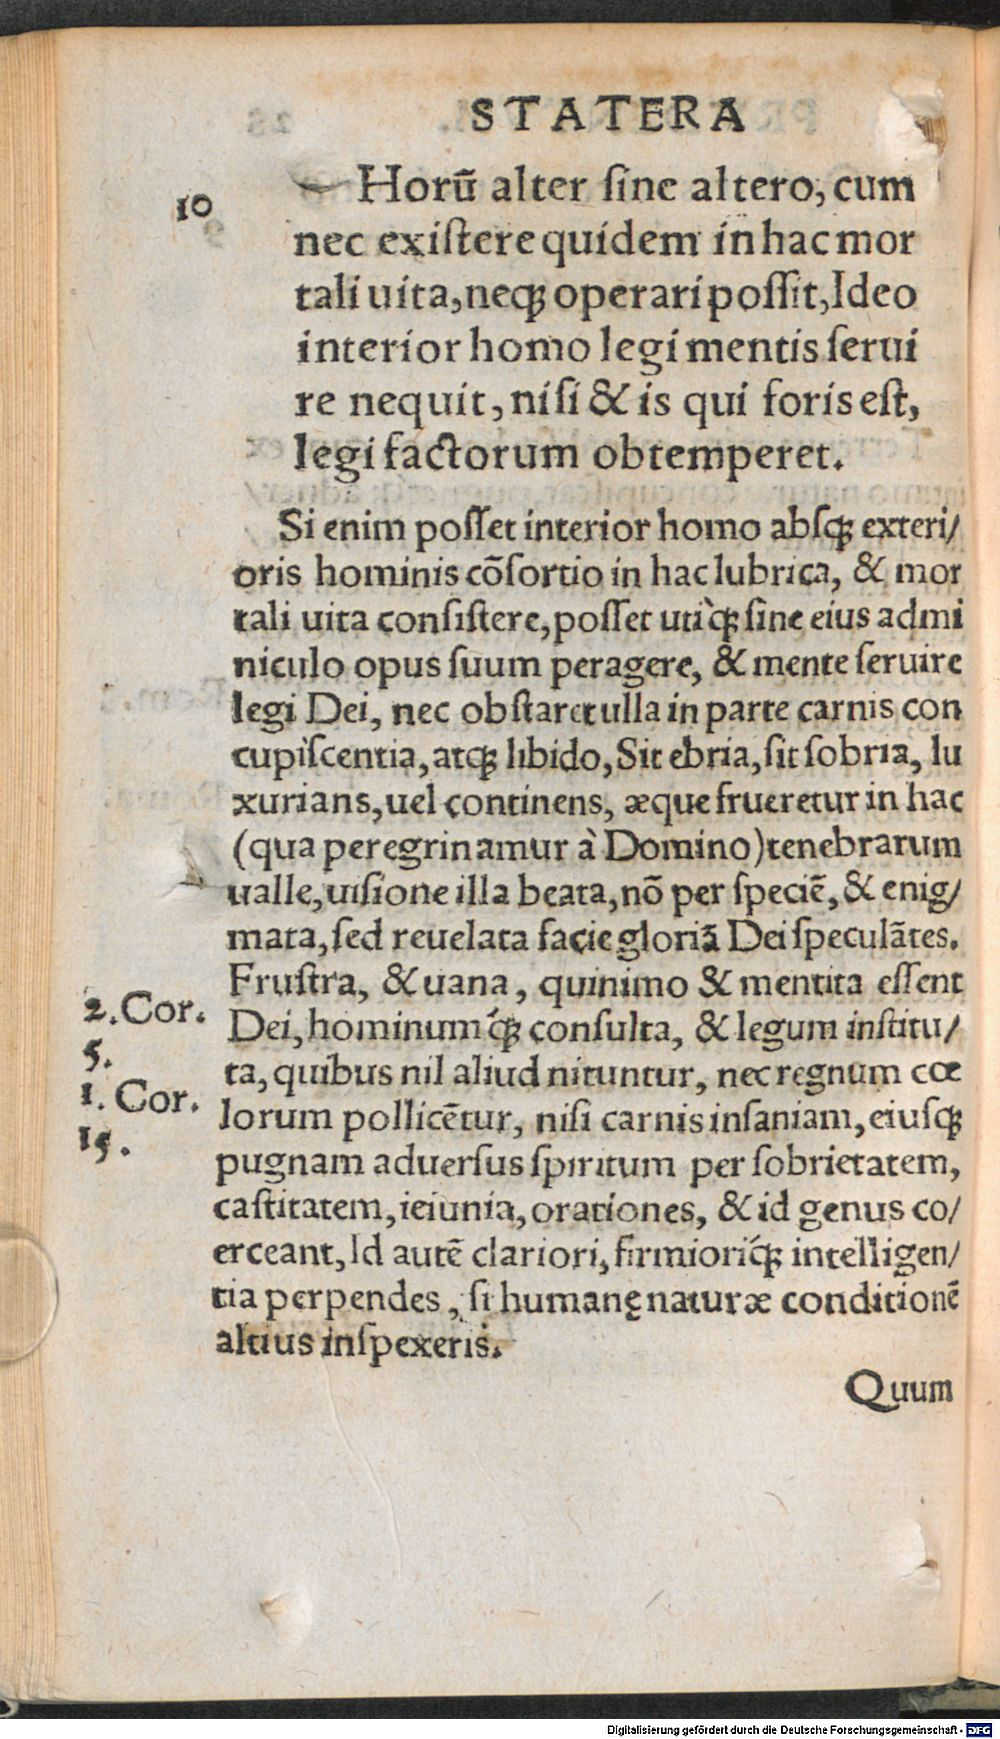 STATERA
10
Horū alter ſine altero, cum
nec exiſtere quidem in hac mor
tali uita, neqꝫ operari poſſit, Ideo
interior homo legi mentis ſerui
re nequit, niſi & is qui foris eſt,
legi factorum obtemperet.
Si enim poſſet interior homo abſqꝫ exteri/
oris hominis cōſortio in hac lubrica, & mor
tali uita conſiſtere, poſſet utiqꝫ̀ ſine eius admi
niculo opus ſuum peragere, & mente ſeruire
legi Dei, nec obſtaret ulla in parte carnis con
cupiſcentia, atqꝫ libido, Sit ebria, ſit ſobria, lu
xurians, uel continens, æque frueretur in hac
(qua peregrinamur à Domino) tenebrarum
ualle, uiſione illa beata, nō per ſpeciē, & enig/
mata, ſed reuelata facie gloriā Dei ſpeculātes.
Fruſtra, & uana, quinimo & mentita eſſent
2. Cor.
5.
Dei, hominumqꝫ́ conſulta, & legum inſtitu/
ta, quibus nil aliud nituntur, nec regnum cœ
1. Cor.
15.
lorum pollicētur, niſi carnis inſaniam, eiuſqꝫ
pugnam aduerſus ſpiritum per ſobrietatem,
caſtitatem, ieiunia, orationes, & id genus co/
erceant, Id autē clariori, firmioriqꝫ́ intelligen/
tia perpendes, ſi humanę naturæ conditionē
altius inſpexeris.
Quum
Digitalisierung gefördert durch die Deutsche Forschungsgemeinschaft - DFG